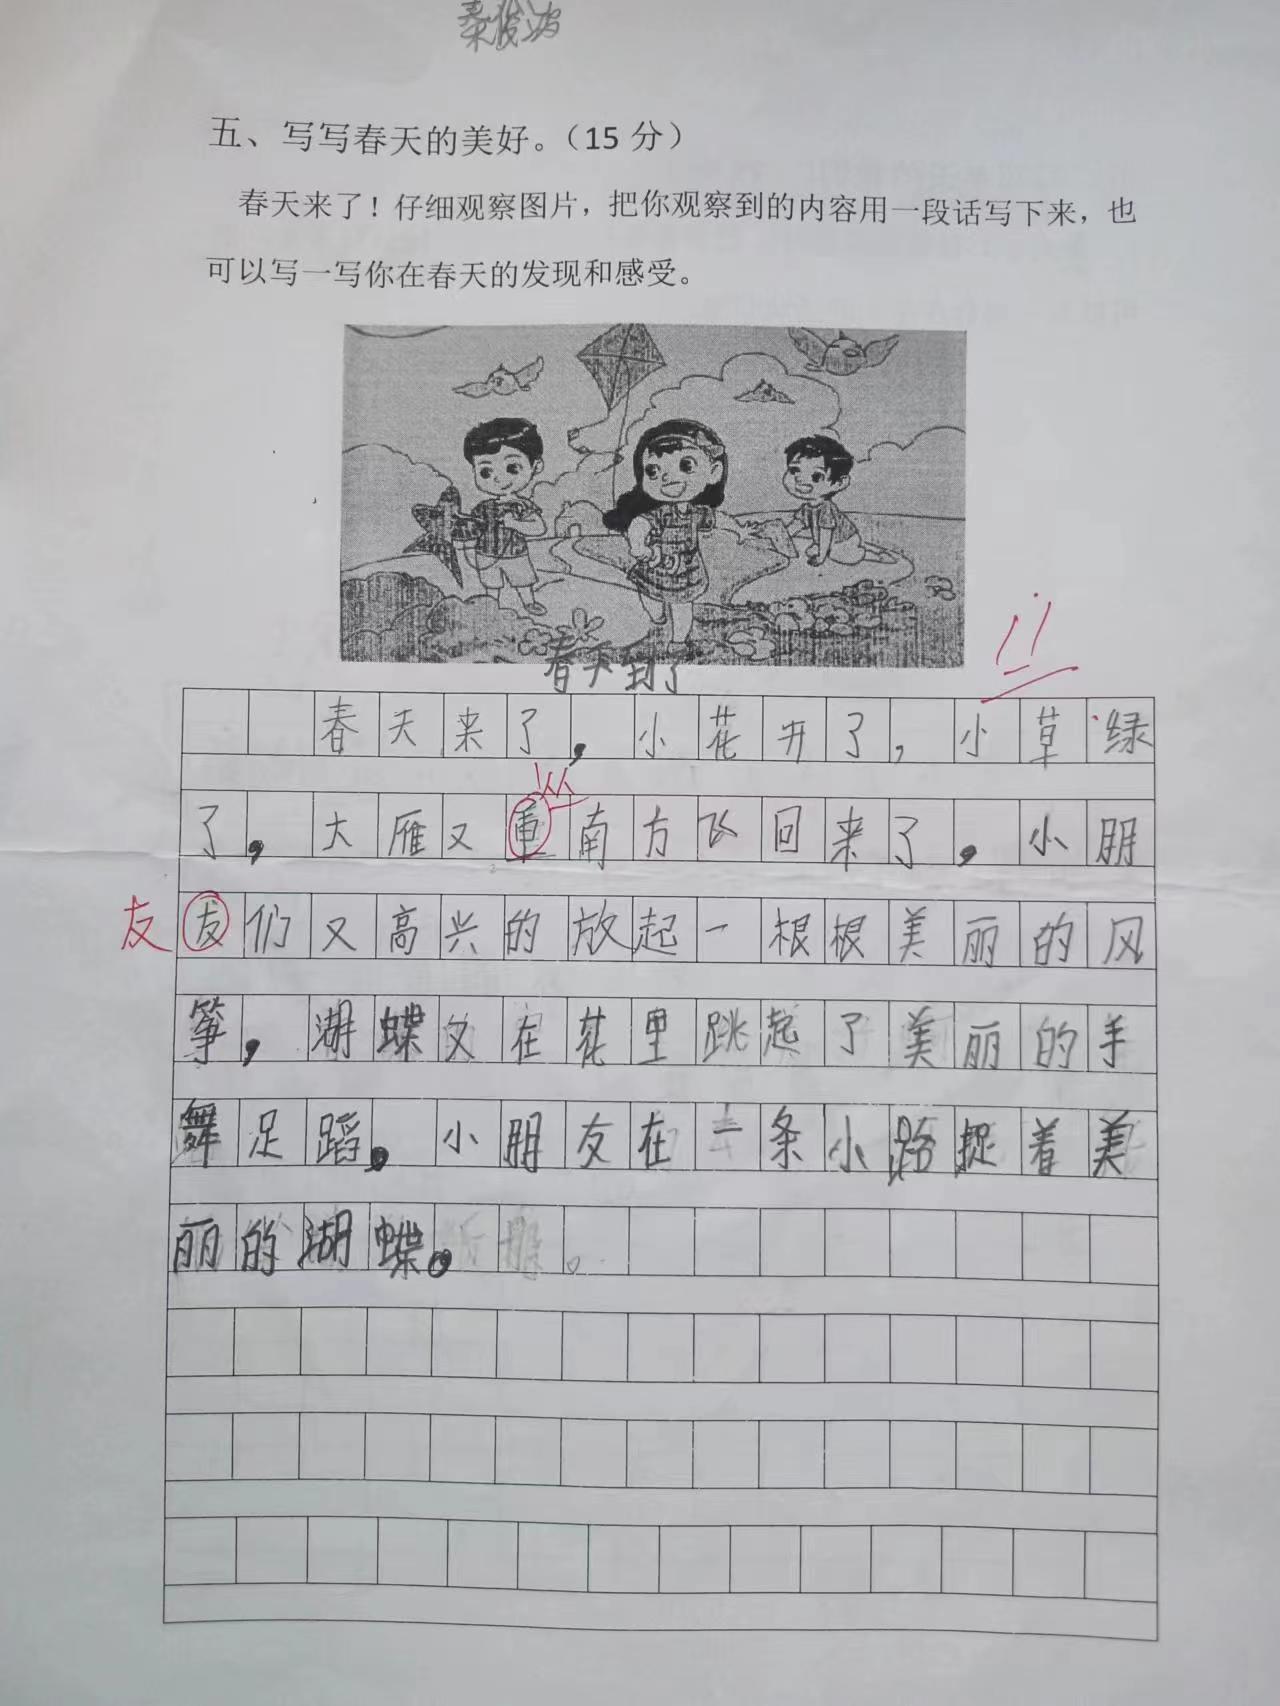 秦俊波
五、写写春天的美好。（15 分）
春天来了！仔细观察图片，把你观察到的内容用一段话写下来，也
可以写一写你在春天的发现和感受。
11
春天到了
春天来了，小花开了，小草绿
丛
了，大雁又重南方飞回来了，小朋
友
友们又高兴的放起一根根美丽的风
筝，湖蝶又在花里跳起了美丽的手
舞足蹈。小朋友在一条小路捉着美
丽的湖蝶。